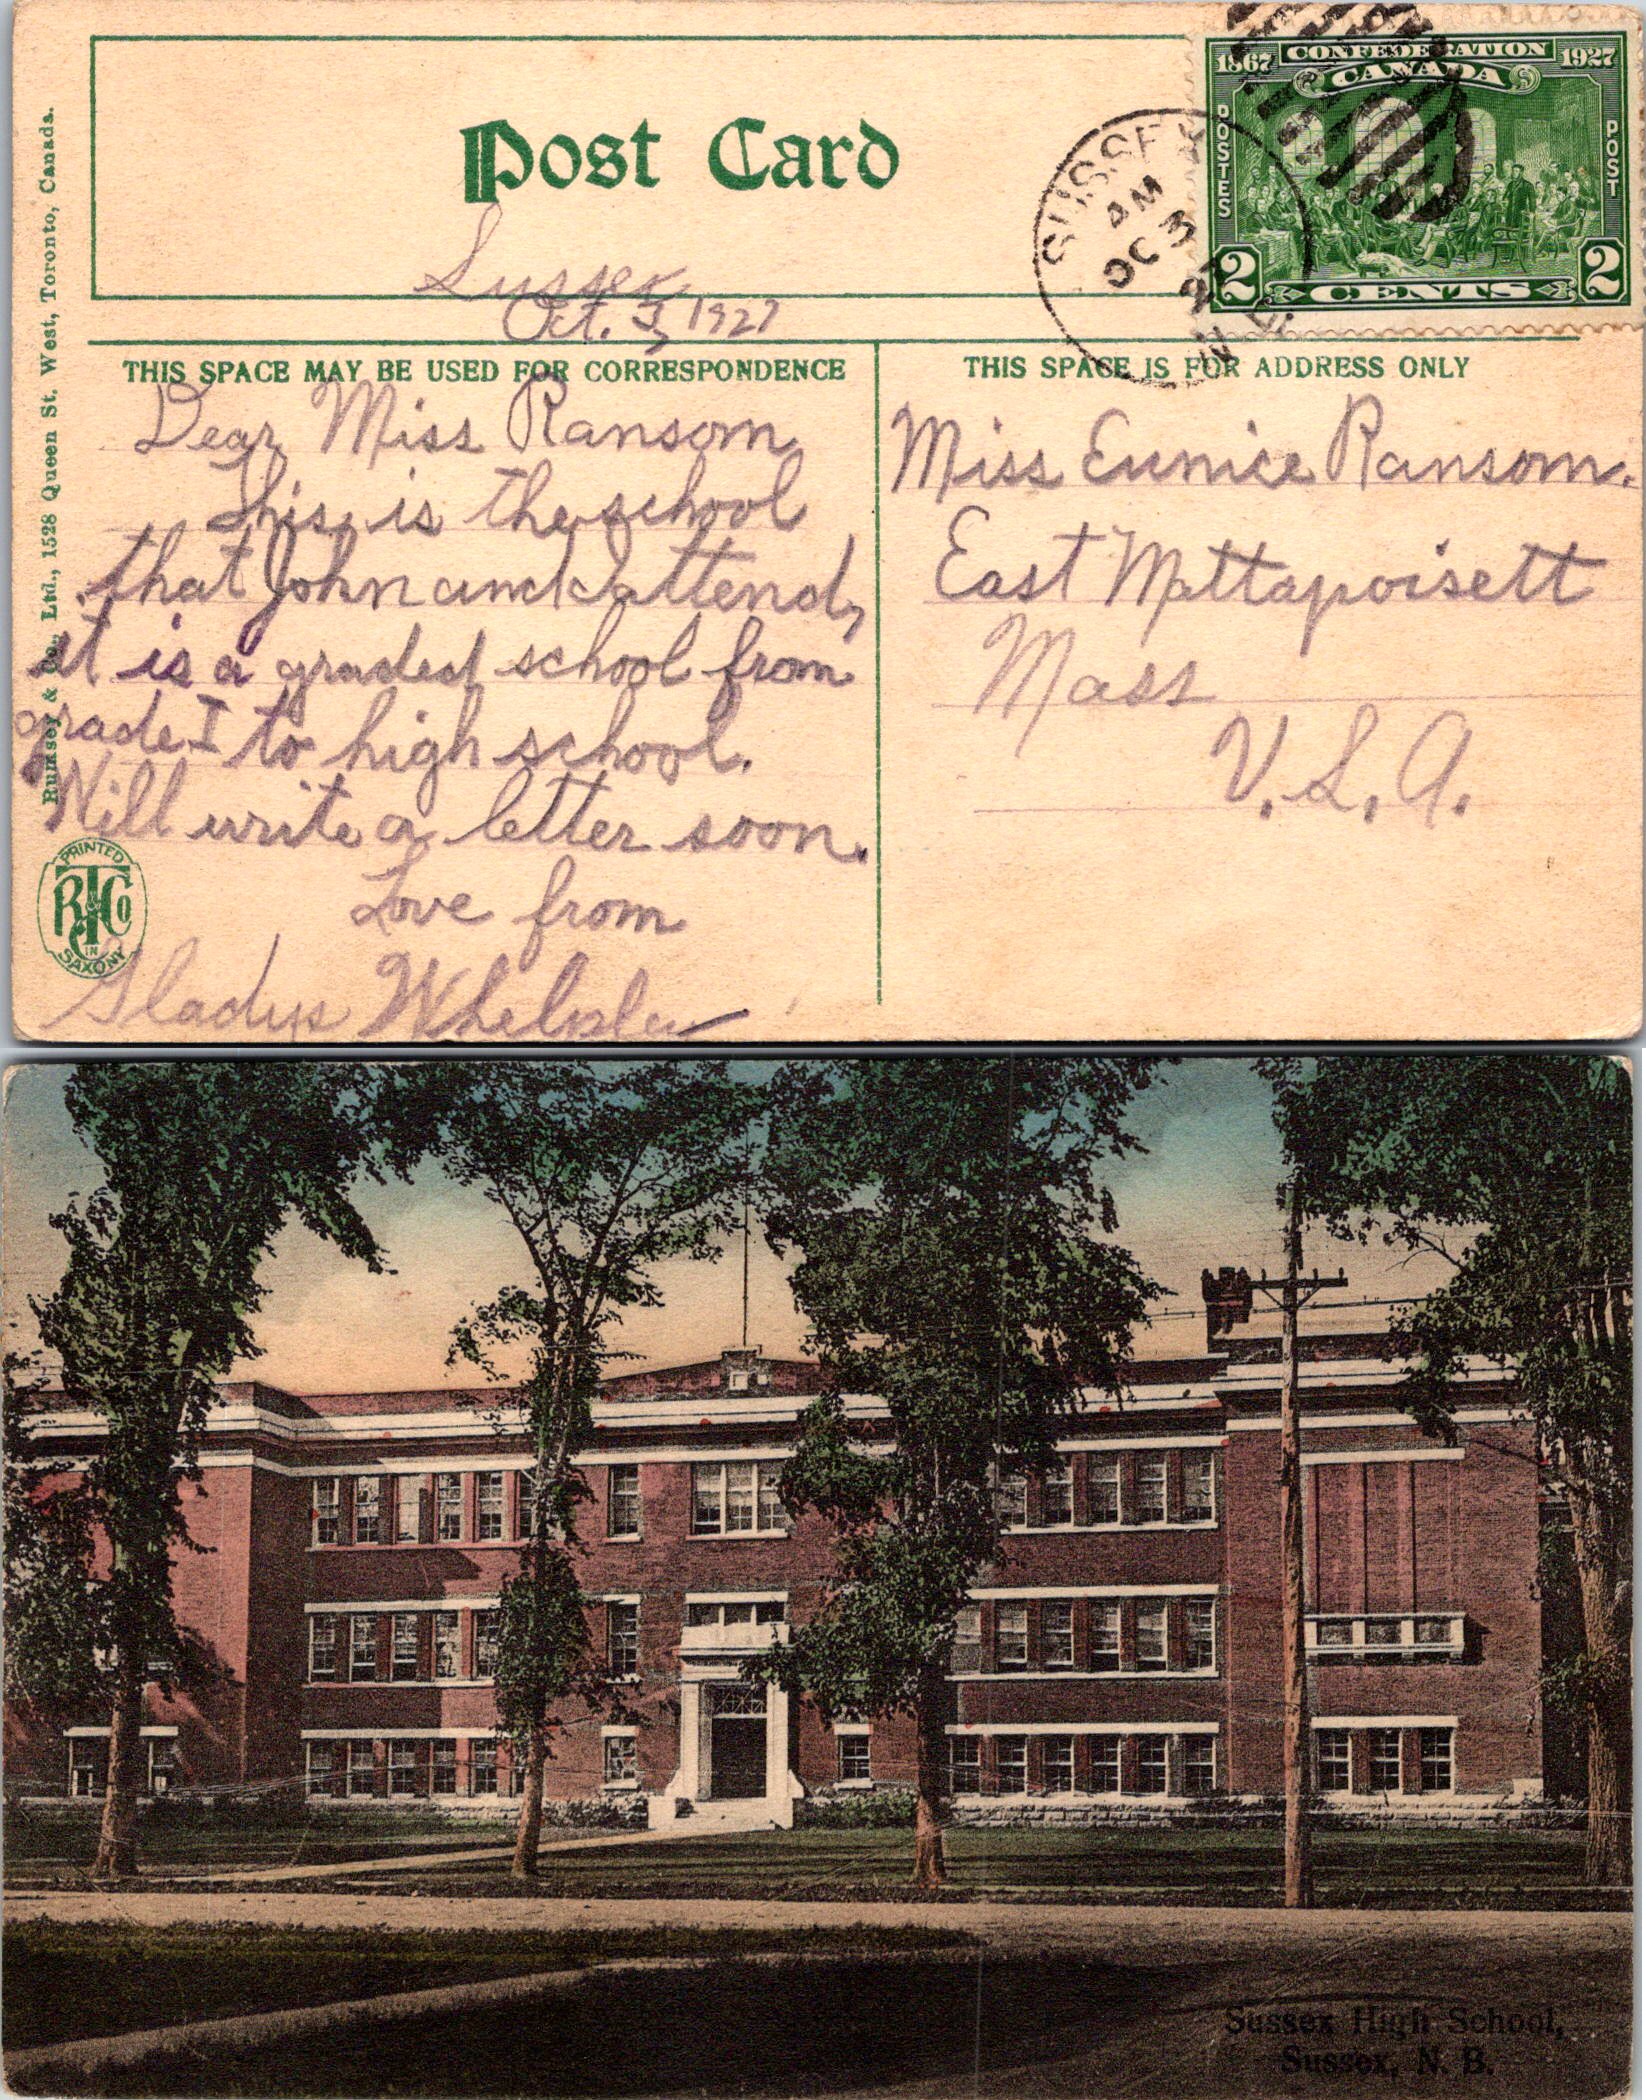 Post Card
1867 CONFEDERATION 1927
CANADA
POSTES
POST
2 CENTS 2
SUSSEX
AM
OC 3
27
N.B.
Sussex
Oct. 3, 1927
THIS SPACE MAY BE USED FOR CORRESPONDENCE
THIS SPACE IS FOR ADDRESS ONLY
Dear Miss Ransom
This is the school
that John and I attend,
it is a graded school from
grade I to high school.
Will write a letter soon.
Love from
Gladys Whelpley
Miss Eunice Ransom.
East Mattapoisett
Mass
U.S.A.
Rumsey & Co., Ltd., 1528 Queen St. West, Toronto, Canada.
PRINTED
R & Co
IN
SAXONY
Sussex High School,
Sussex, N. B.